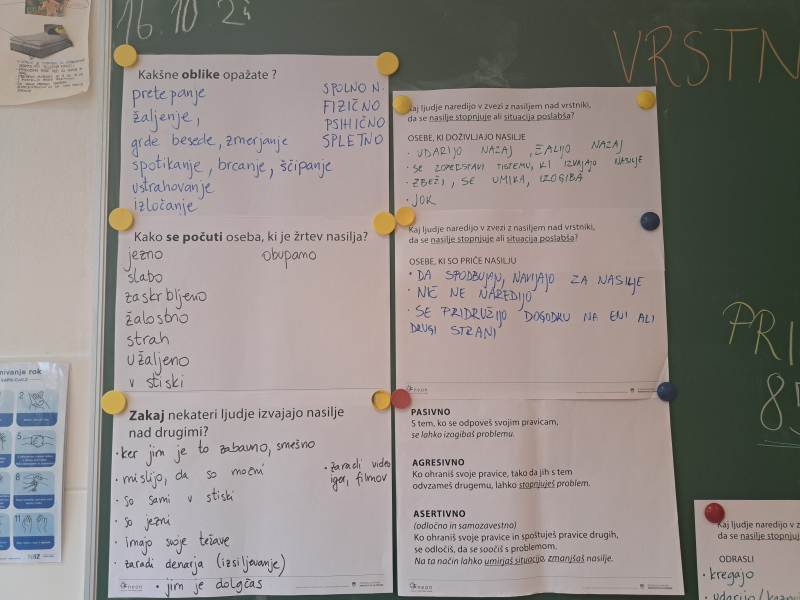 16.10.23
VRSTN
Kakšne oblike opažate ?
pretepanje
žaljenje,
grde besede, zmerjanje
spotikanje, brcanje, ščipanje
ustrahovanje
izločanje
SPOLNO N.
FIZIČNO
PSIHIČNO
SPLETNO
Kako se počuti oseba, ki je žrtev nasilja?
jezno
slabo
zaskrbljeno
žalostno
strah
užaljeno
v stiski
obupano
Zakaj nekateri ljudje izvajajo nasilje
nad drugimi?
· ker jim je to zabavno, smešno
· mislijo, da so močni
· so sami v stiski
· so jezni
· imajo svoje težave
· zaradi denarja (izsiljevanje)
· jim je dolgčas
· zaradi video
iger, filmov
neon
Kaj ljudje naredijo v zvezi z nasiljem nad vrstniki,
da se nasilje stopnjuje ali situacija poslabša?
OSEBE, KI DOŽIVLJAJO NASILJE
· UDARIJO NAZAJ, ŽALIJO NAZAJ
· SE ZOPERSTAVI TISTEMU, KI IZVAJAJO NASILJE
· ZBEŽI, SE UMIKA, IZOGIBA
· JOK
Kaj ljudje naredijo v zvezi z nasiljem nad vrstniki,
da se nasilje stopnjuje ali situacija poslabša?
OSEBE, KI SO PRIČE NASILJU
· DA SPODBUJAJO, NAVIJAJO ZA NASILJE
· NIČ NE NAREDIJO
· SE PRIDRUŽIJO DOGODKU NA ENI ALI
DRUGI STRANI
neon
PASIVNO
S tem, ko se odpoveš svojim pravicam,
se lahko izogibaš problemu.
AGRESIVNO
Ko ohraniš svoje pravice, tako da jih s tem
odvzameš drugemu, lahko stopnjuješ problem.
ASERTIVNO
(odločno in samozavestno)
Ko ohraniš svoje pravice in spoštuješ pravice drugih,
se odločiš, da se soočiš s problemom.
Na ta način lahko umirjaš situacijo, zmanjšaš nasilje.
neon
PRI
85
Kaj ljudje naredijo v z
da se nasilje stopnjuje
ODRASLI
· kregajo
nivanje rok
2
5
8
11
NIJZ